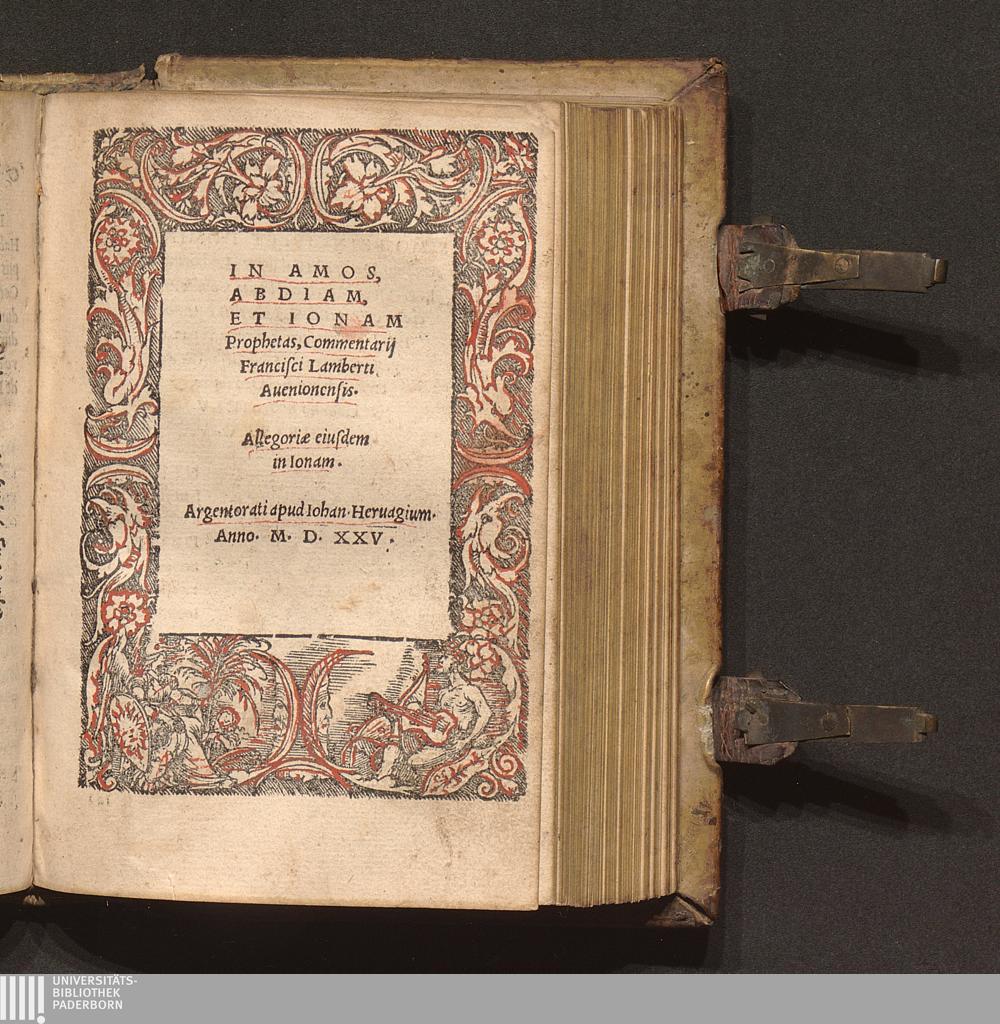 IN AMOS,
ABDIAM,
ET IONAM
Prophetas, Commentarij
Francisci Lamberti
Auenionensis.
Allegoriæ eiusdem
in Ionam.
Argentorati apud Iohan. Heruagium.
Anno. M. D. XXV.
UNIVERSITÄTS-
BIBLIOTHEK
PADERBORN